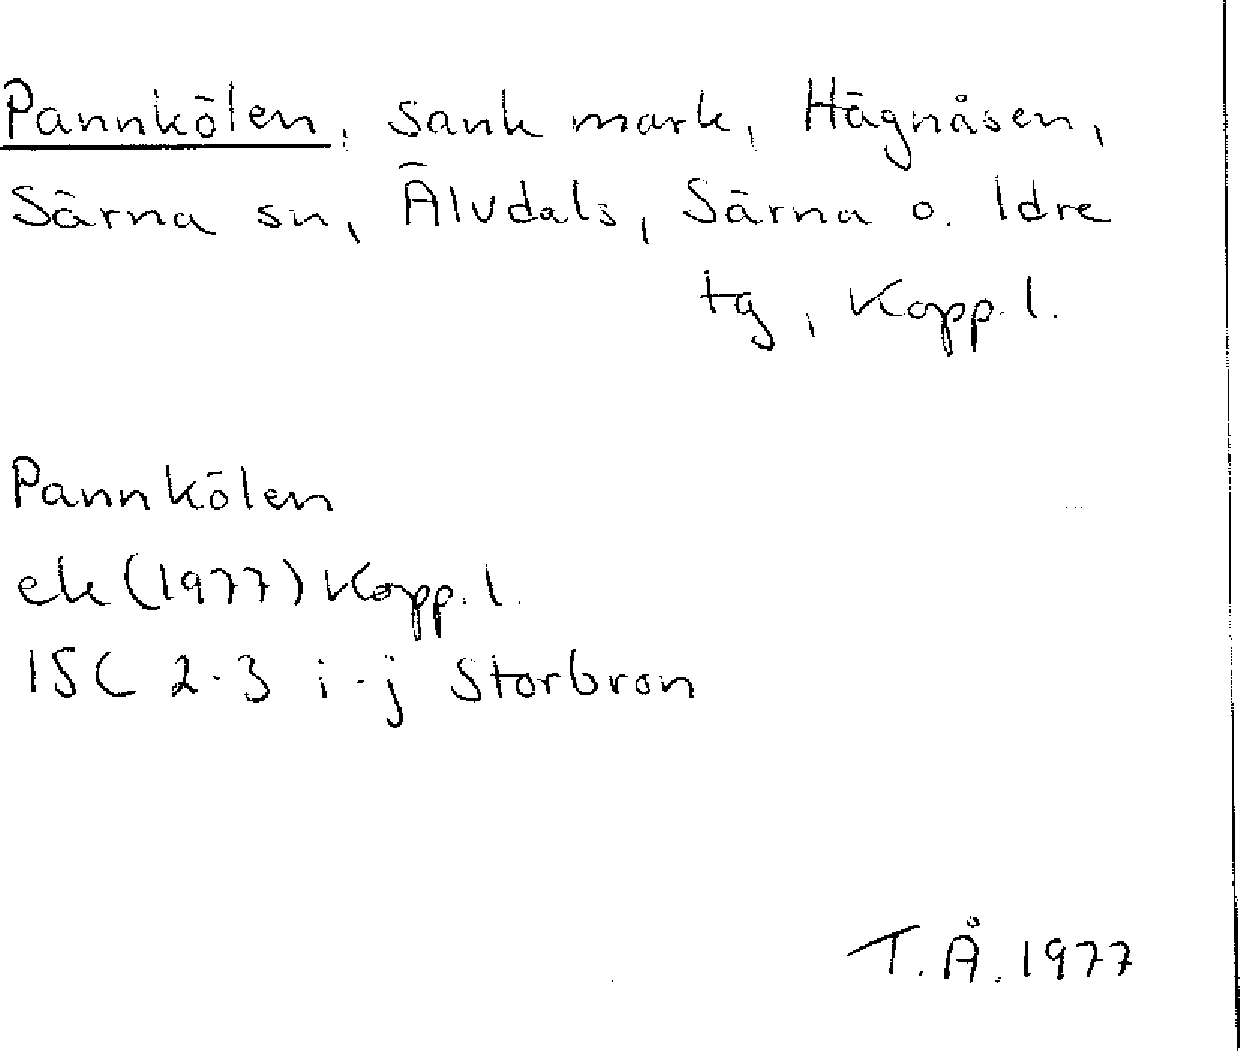 Pannkölen, sank mark, Hägnåsen,
Särna sn, Älvdals, Särna o. Idre
tg, Kopp. l.
Pannkölen
ek (1977) Kopp. l.
15C 2-3 i-j Storbron
T. Å. 1977